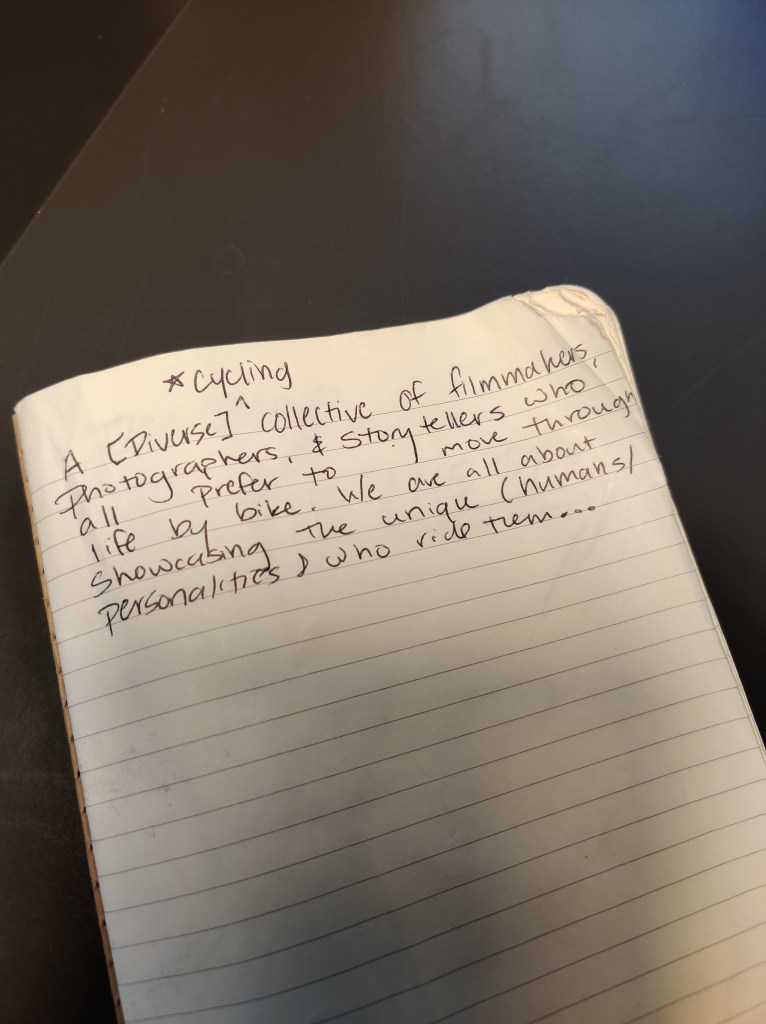 *cycling
A [Diverse] ^ collective of filmmakers,
Photographers, & Storytellers who
all prefer to move through
life by bike. We are all about
showcasing the unique (humans/
personalities) who ride them...